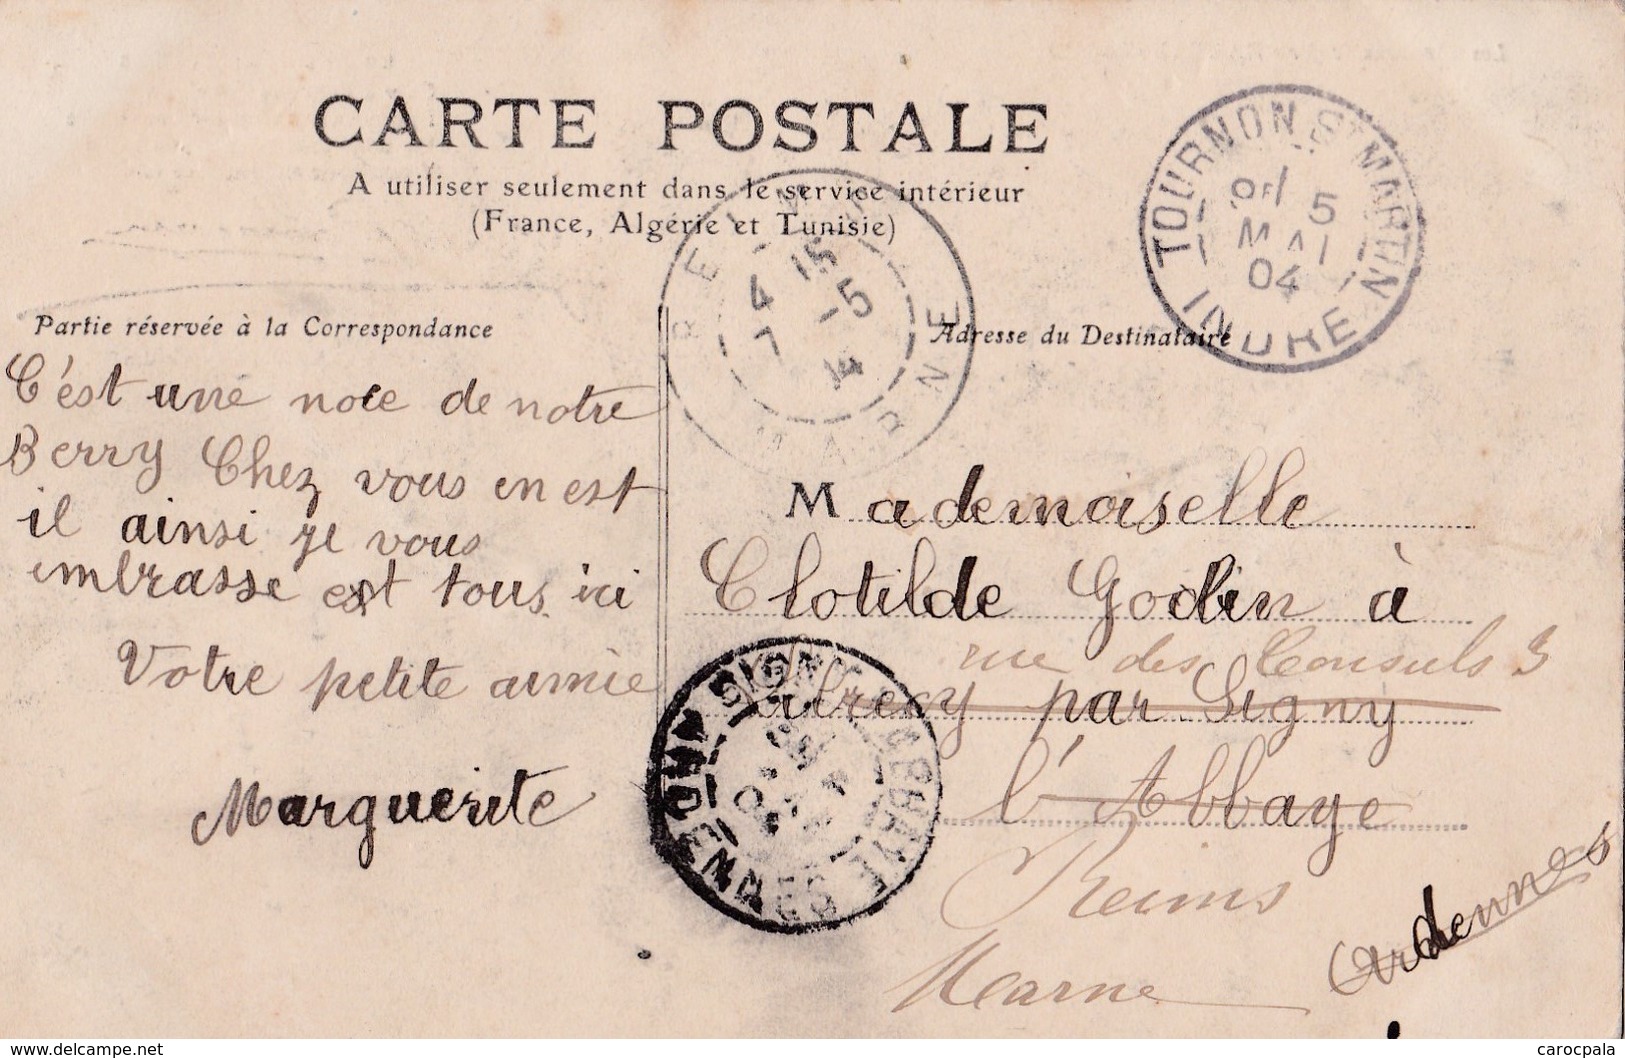 CARTE POSTALE
A utiliser seulement dans le service intérieur
(France, Algérie et Tunisie)
TOURNON ST MARTIN
5
MAI
04
INDRE
REIMS
4 15
7 -5
MARNE
Partie réservée à la Correspondance
C'est une noce de notre
Berry Chez vous en est
il ainsi je vous
embrasse est tous ici
Votre petite amie
Marguerite
Adresse du Destinataire
Mademoiselle
Clotilde Godin à
rue des Consuls 3
par Signy
l'Abbaye
Reims
Marne
Ardennes
SIGNY L'ABBAYE
ARDENNES
carocpala